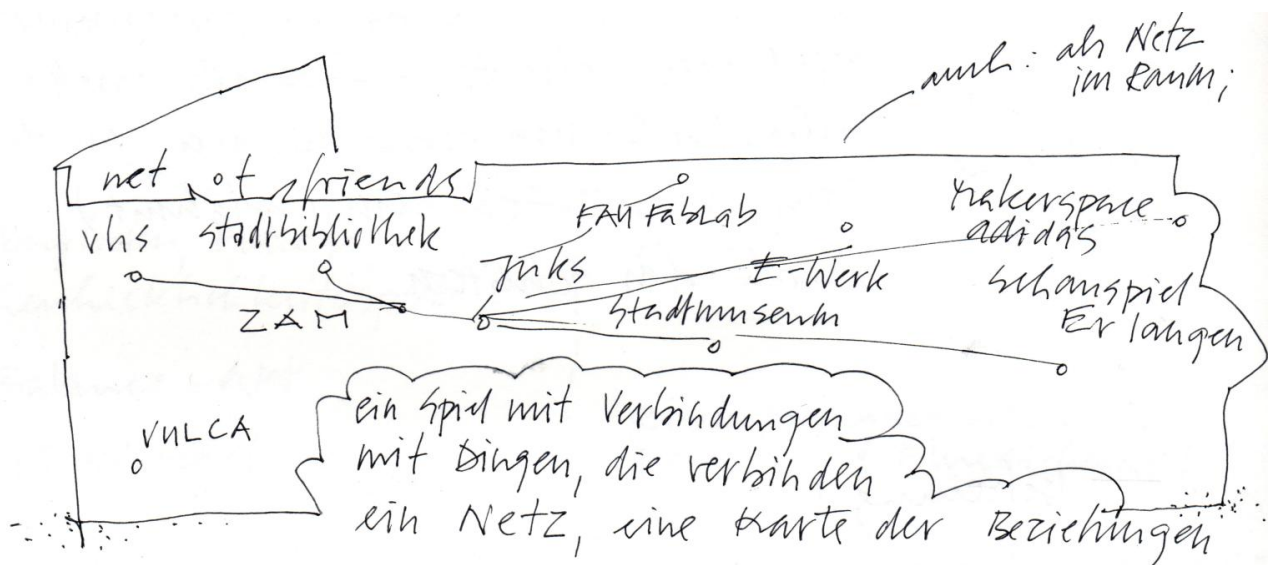 auch: als Netz
im Raum;
net of friends
vhs
Stadtbibliothek
FAU Fablab
Makerspace
adidas
Juks
E-Werk
Schauspiel
Erlangen
ZAM
Stadtmuseum
VULCA
ein Spiel mit Verbindungen
mit Dingen, die verbinden
ein Netz, eine Karte der Beziehungen